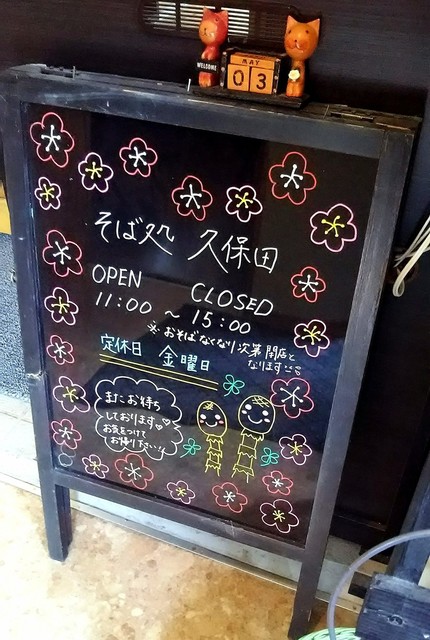 WELCOME
MAY
03
そば処 久保田
OPEN CLOSED
11:00 ～ 15:00
※おそばなくなり次第閉店と
なります
定休日 金曜日
またお待ち
しております♡
お気をつけて
お帰り下さい!!